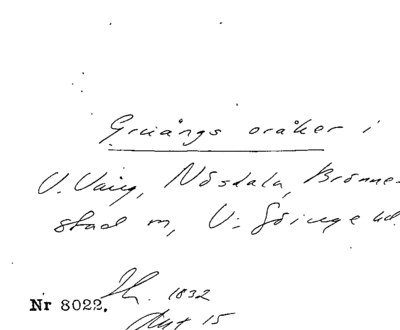 Griångs oråker i
V. Vång, Nösdala, Brönne-
stad m, V. Göinge hd.
Nr 8022. 1832
Akt 15